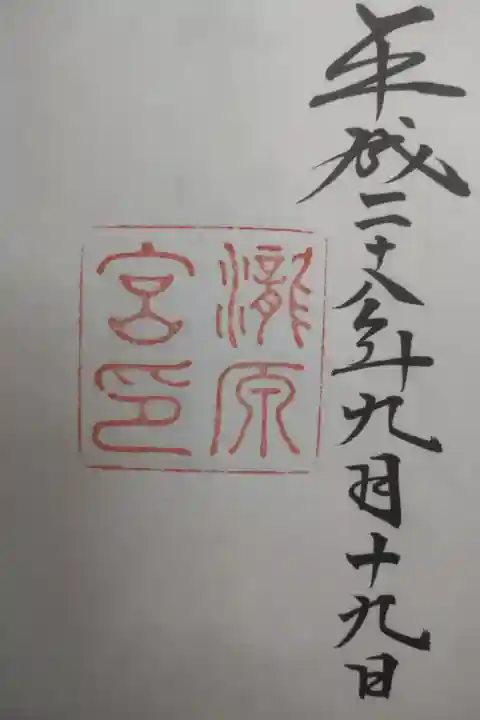 平成二十八年九月十九日
瀧原
宮印